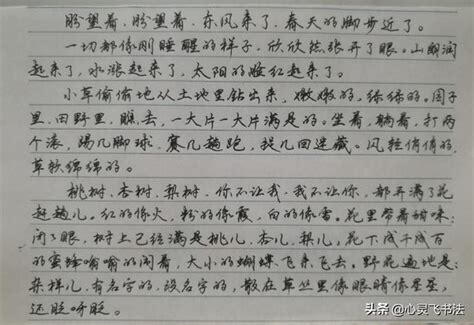 盼望着，盼望着，东风来了，春天的脚步近了。
一切都像刚睡醒的样子，欣欣然张开了眼。山朗润
起来了，水涨起来了，太阳的脸红起来了。
小草偷偷地从土地里钻出来，嫩嫩的，绿绿的。园子
里，田野里，瞧去，一大片一大片满是的。坐着，躺着，打两
个滚，踢几脚球，赛几趟跑，捉几回迷藏。风轻悄悄的，
草软绵绵的。
桃树、杏树、梨树，你不让我，我不让你，都开满了花
赶趟儿。红的像火，粉的像霞，白的像雪。花里带着甜味；
闭了眼，树上已经满是桃儿、杏儿、梨儿，花下成千成百
的蜜蜂嗡嗡的闹着，大小的蝴蝶飞来飞去。野花遍地是：
杂样儿，有名字的，没名字的，散在草丛里像眼睛像星星，
还眨呀眨。
头条 @心灵飞书法